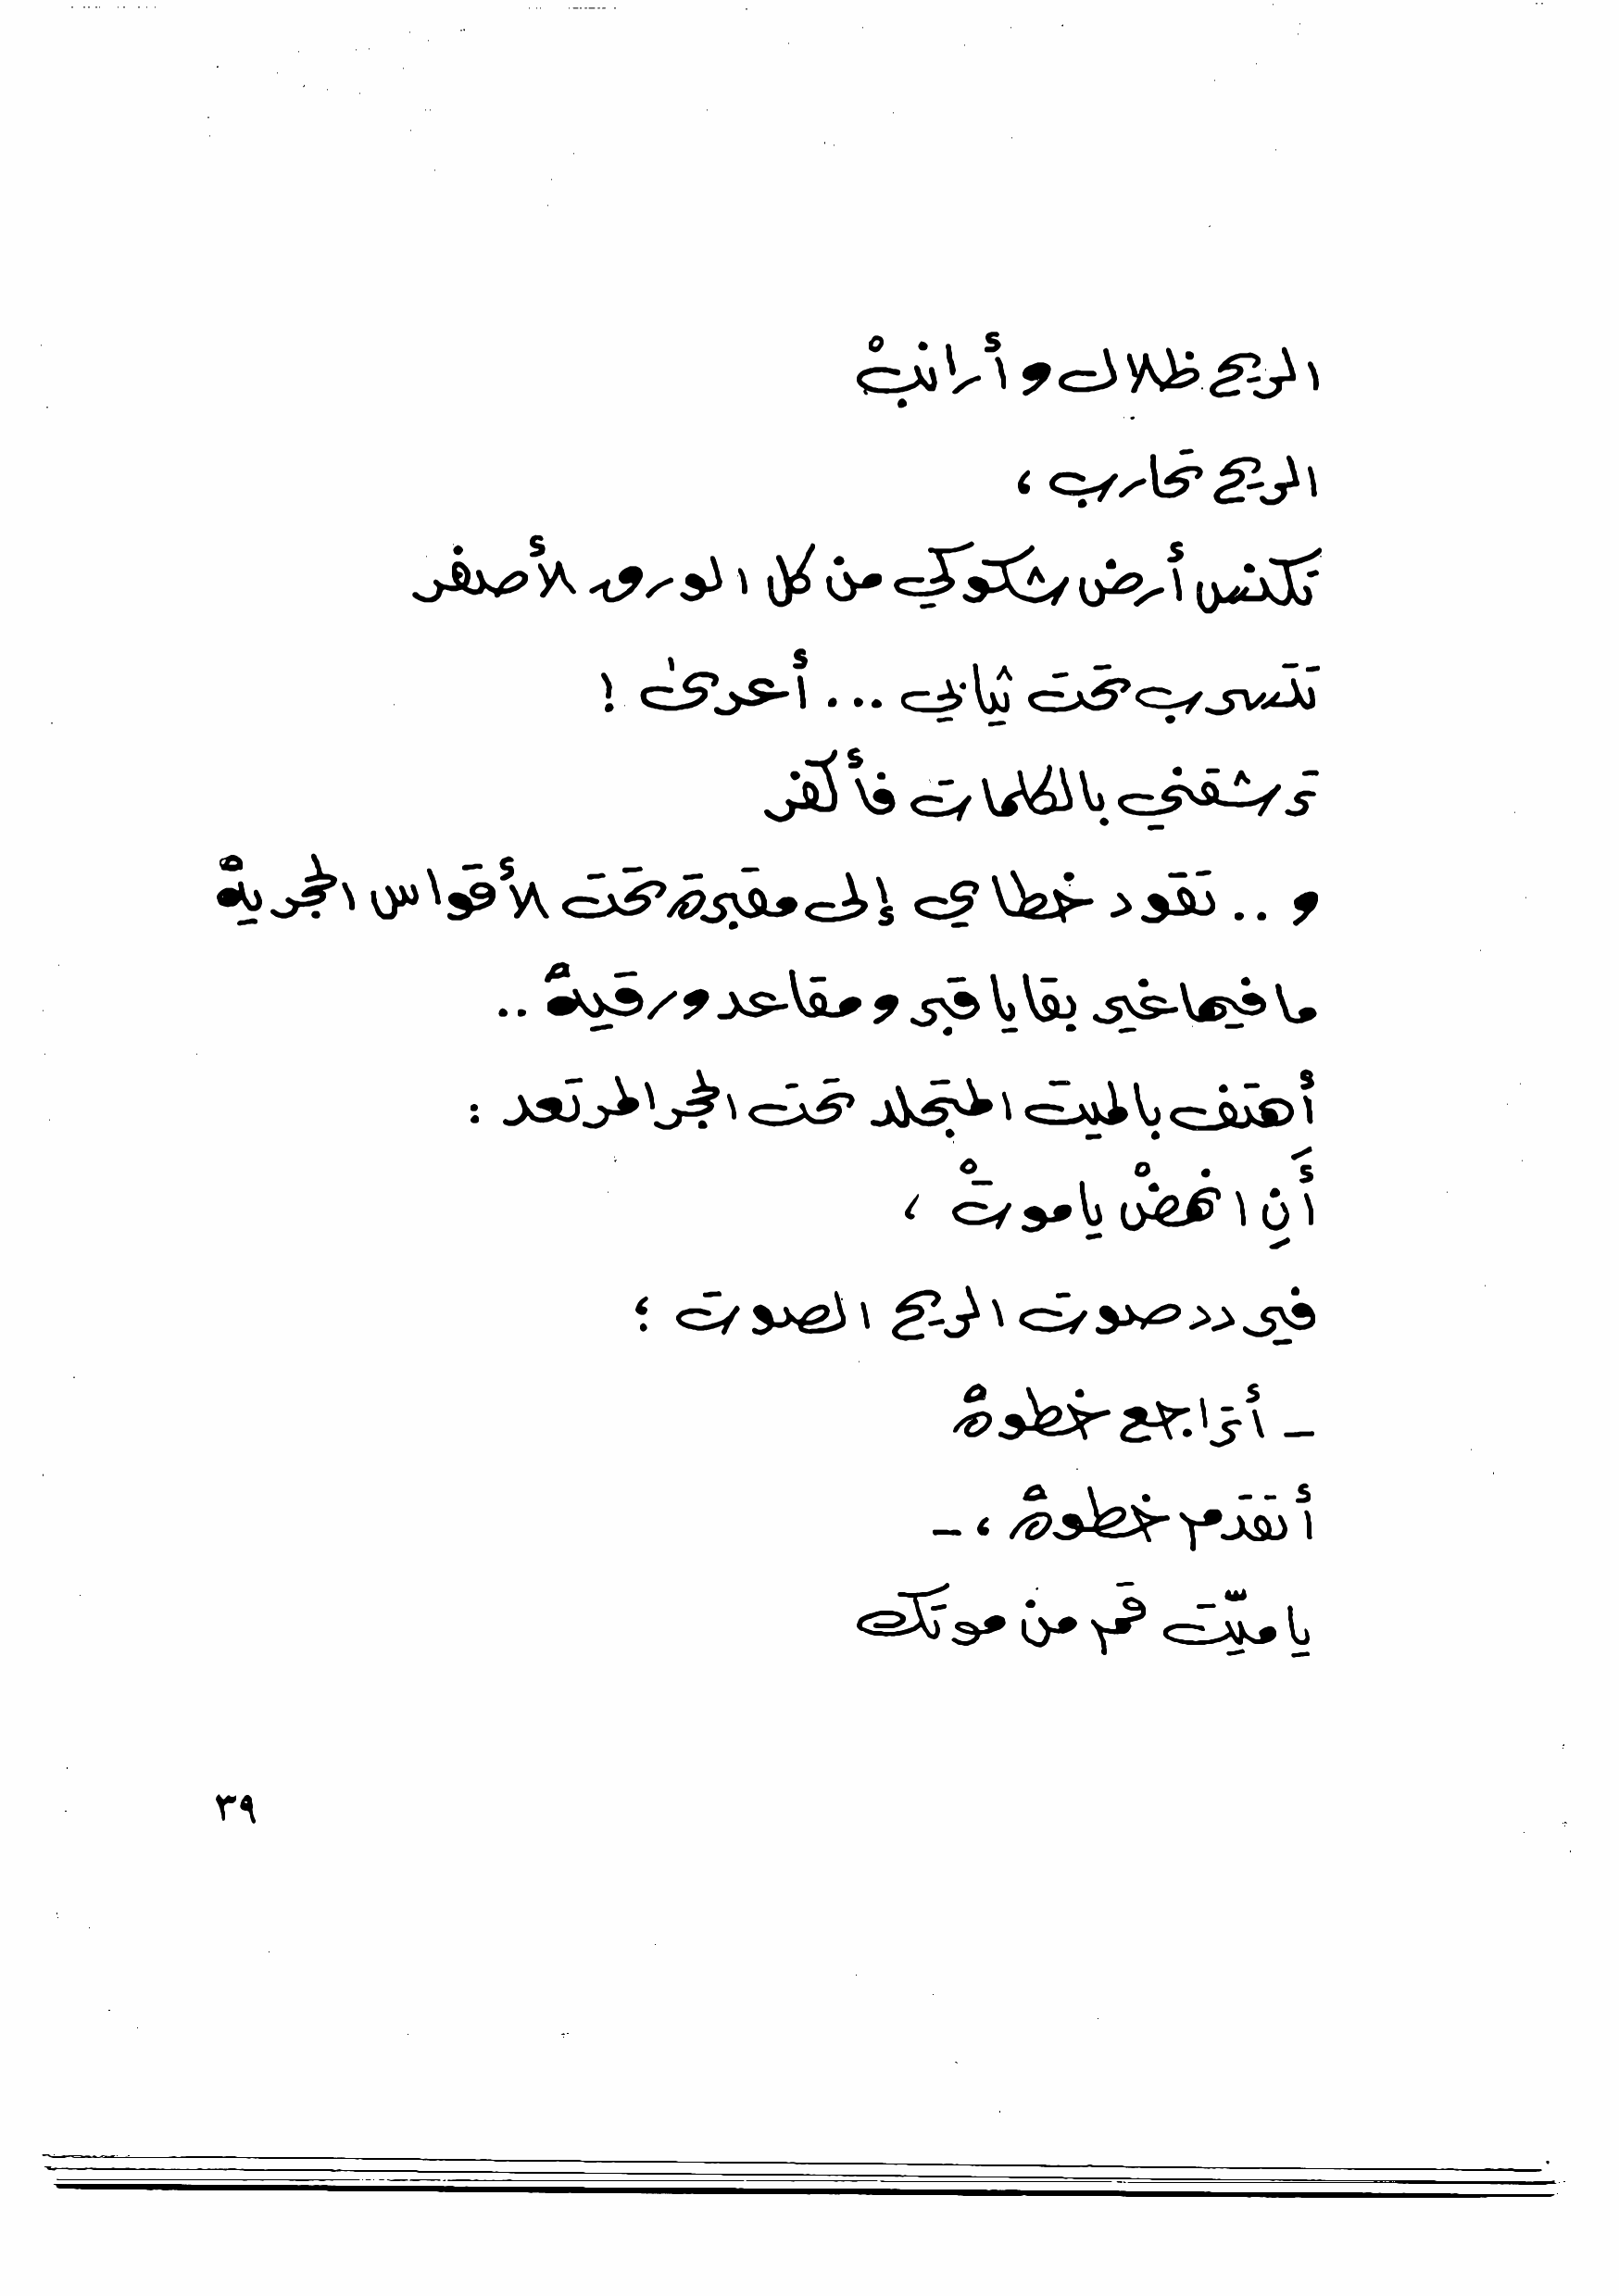 الريح ظلال وأرانبْ
الريح تحارب ،
تكنس أرض شكوكي من كل الورق الأصفر
تتسرب تحت ثيابي ... أعرىٰ !
ترشقني بالكلمات فأكفر
و .. تقود خطاي إلى مقبرة تحت الأقواس الحجريةْ
ما فيها غير بقايا قبر ومقاعد ورقيةْ ..
أهتف بالميت المتجلد تحت الحجر المرتعد :
أَنِ انهضْ يا موتْ ،
فيردد صوت الريح الصوت ؛
ـ أتراجع خطوةْ
أتقدم خطوةْ ، ـ
يا ميّت قم من موتك
٣٩